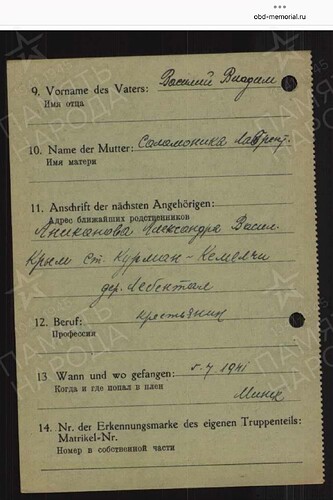 obd-memorial.ru
9. Vorname des Vaters: Василий Владим
Имя отца
10. Name der Mutter: Саламоника Лаврент.
Имя матери
11. Anschrift der nächsten Angehörigen:
Адрес ближайших родственников
Аниканова Александра Васил.
Крым ст. Курман-Кемелчи
дер. Лебентал
12. Beruf: крестьянин
Профессия
13 Wann und wo gefangen: 5.7.1941
Когда и где попал в плен
Минск
14. Nr. der Erkennungsmarke des eigenen Truppenteils:
Matrikel-Nr.
Номер в собственной части
ПАМЯТЬ
НАРОДА